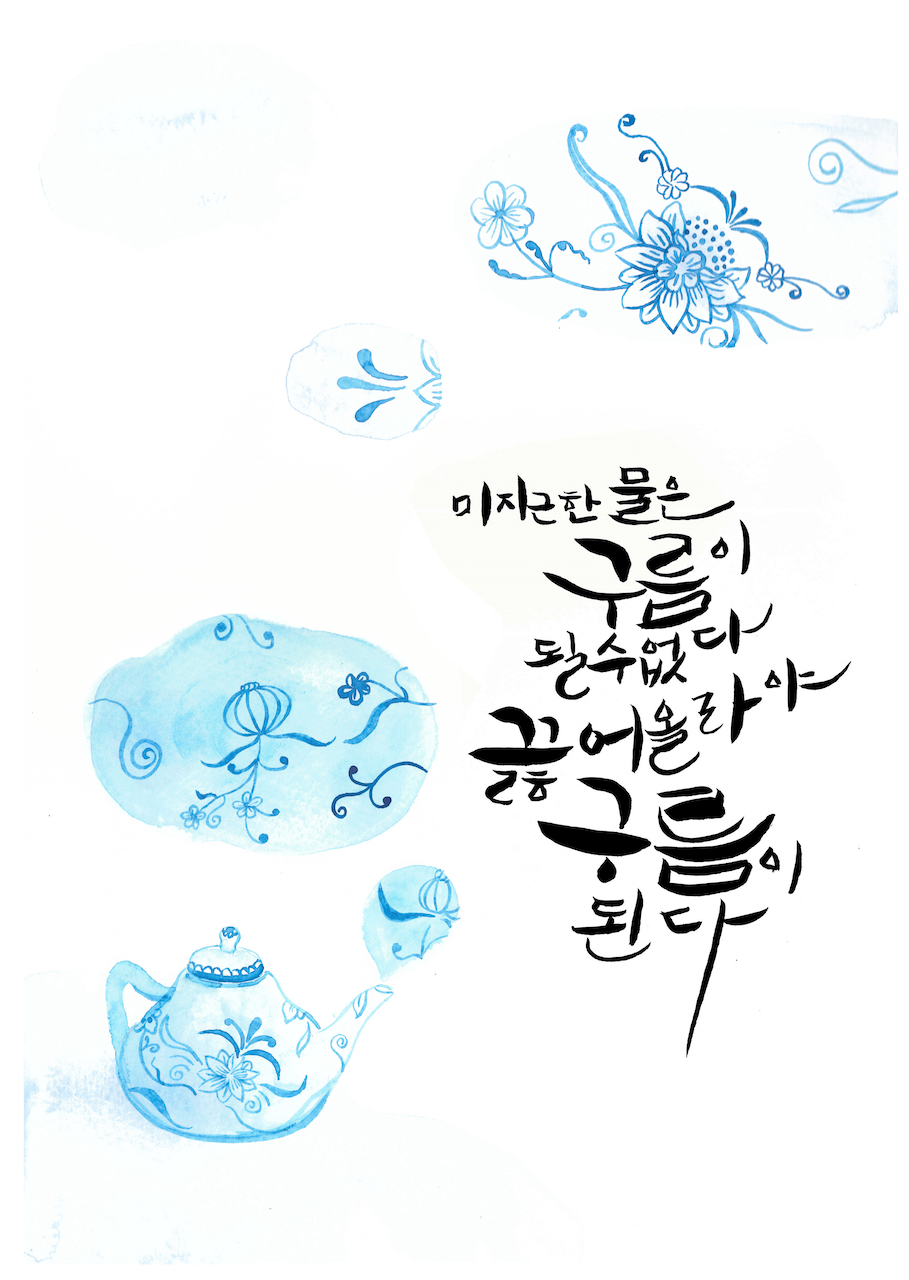 미지근한 물은
구름이
될 수 없다
끓어올라야
구름이
된다